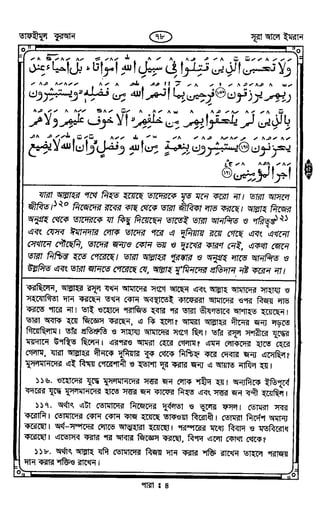 তাফহীমুল কুরআন
৭৮
সূরা আলে ইমরান
وَلَا تَحْسَبَنَّ الَّذِينَ قُتِلُوا فِي سَبِيلِ اللَّهِ أَمْوَاتًا ۚ بَلْ أَحْيَاءٌ عِندَ
رَبِّهِمْ يُرْزَقُونَ ﴿١٦٩﴾ فَرِحِينَ بِمَا آتَاهُمُ اللَّهُ مِن فَضْلِهِ ۙ وَيَسْتَبْشِرُونَ
بِالَّذِينَ لَمْ يَلْحَقُوا بِهِم مِّنْ خَلْفِهِمْ ۙ أَلَّا خَوْفٌ عَلَيْهِمْ وَلَا هُمْ
يَحْزَنُونَ ﴿١٧٠﴾ يَسْتَبْشِرُونَ بِنِعْمَةٍ مِّنَ اللَّهِ وَفَضْلٍ ۙ وَأَنَّ اللَّهَ لَا يُضِيعُ
أَجْرَ الْمُؤْمِنِينَ ﴿١٧١﴾
যারা আল্লাহর পথে নিহত হয়েছে তাদেরকে মৃত মনে করো না। তারা আসলে
জীবিত।১২০ নিজেদের রবের কাছ থেকে তারা জীবিকা লাভ করছে। আল্লাহ নিজের
অনুগ্রহ থেকে তাদেরকে যা কিছু দিয়েছেন তাতেই তারা আনন্দিত ও পরিতৃপ্ত১২১
এবং যেসব ঈমানদার লোক তাদের পরে এ দুনিয়ায় রয়ে গেছে এবং এখনো
সেখানে পৌছেনি, তাদের জন্যও কোন ভয় ও দুঃখের কারণ নেই, একথা জেনে
তারা নিশ্চিন্ত হতে পেরেছে। তারা আল্লাহর পুরস্কার ও অনুগ্রহ লাভে আনন্দিত ও
উল্লসিত এবং তারা জানতে পেরেছে যে, আল্লাহ মু’মিনদের প্রতিদান নষ্ট করেন না।
করছিলেন, আল্লাহর রসূল যখন আমাদের সংগে আছেন এবং আল্লাহ আমাদের সাহায্য ও
সহযোগিতা দান করছেন তখন কোন অবস্থাতেই কাফেররা আমাদের ওপর বিজয় লাভ
করতে পারে না। তাই ওহোদে পরাজিত হবার পর তারা ভীষণভাবে আশাহত হয়েছেন।
তারা অবাক হয়ে জিজ্ঞেস করছেন, এ কি হলো? আমরা আল্লাহর দীনের জন্য লড়তে
গিয়েছিলাম। তাঁর প্রতিশ্রুতি ও সাহায্য আমাদের সংগে ছিল। তাঁর রসূল সশরীরে যুদ্ধের
ময়দানে উপস্থিত ছিলেন। এরপরও আমরা হেরে গেলাম? এমন লোকদের হাতে হেরে
গেলাম, যারা আল্লাহর দীনকে দুনিয়ার বুক থেকে নিশ্চিহ্ন করে দেবার জন্য এসেছিল?
মুসলমানদের এই বিস্ময় পেরেশানী ও হতাশা দূর করার জন্য এ আয়াত নাযিল হয়।
১১৬. ওহোদের যুদ্ধে মুসলমানদের সত্তর জন লোক শহীদ হয়। অন্যদিকে ইতিপূর্বে
বদরের যুদ্ধে মুসলমানদের হাতে সত্তর জন কাফের নিহত এবং সত্তর জন বন্দী হয়েছিল।
১১৭. অর্থাৎ এটা তোমাদের নিজেদের দুর্বলতা ও ভুলের ফসল। তোমরা সবর
করোনি। তোমাদের কোন কোন কাজ হয়েছে তাকওয়া বিরোধী। তোমরা নির্দেশ অমান্য
করেছো। অর্থ-সম্পদের লোভে আত্মহারা হয়েছো। পরস্পরের মধ্যে বিবাদ ও মতবিরোধ
করেছো। এতোসব করার পর আবার জিজ্ঞেস করছো, বিপদ এলো কোথা থেকে?
১১৮. অর্থাৎ আল্লাহ যদি তোমাদের বিজয় দান করার শক্তি রাখেন তাহলে পরাজয়
দান করার শক্তিও রাখেন।
পারা : ৪